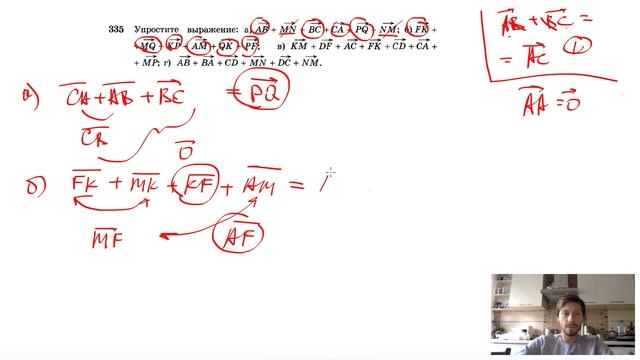 335 Упростите выражение: а) AB + MN + BC + CA + PQ + NM; б) FK +
+ MQ + KP + AM + QK + PF; в) KM + DF + AC + FK + CD + CA +
+ MP; г) AB + BA + CD + MN + DC + NM.
AB + BC =
= AC 1
AA = 0
а) CA + AB + BC = PQ
CB
0
б) FK + MK + KF + AM =
MF AF